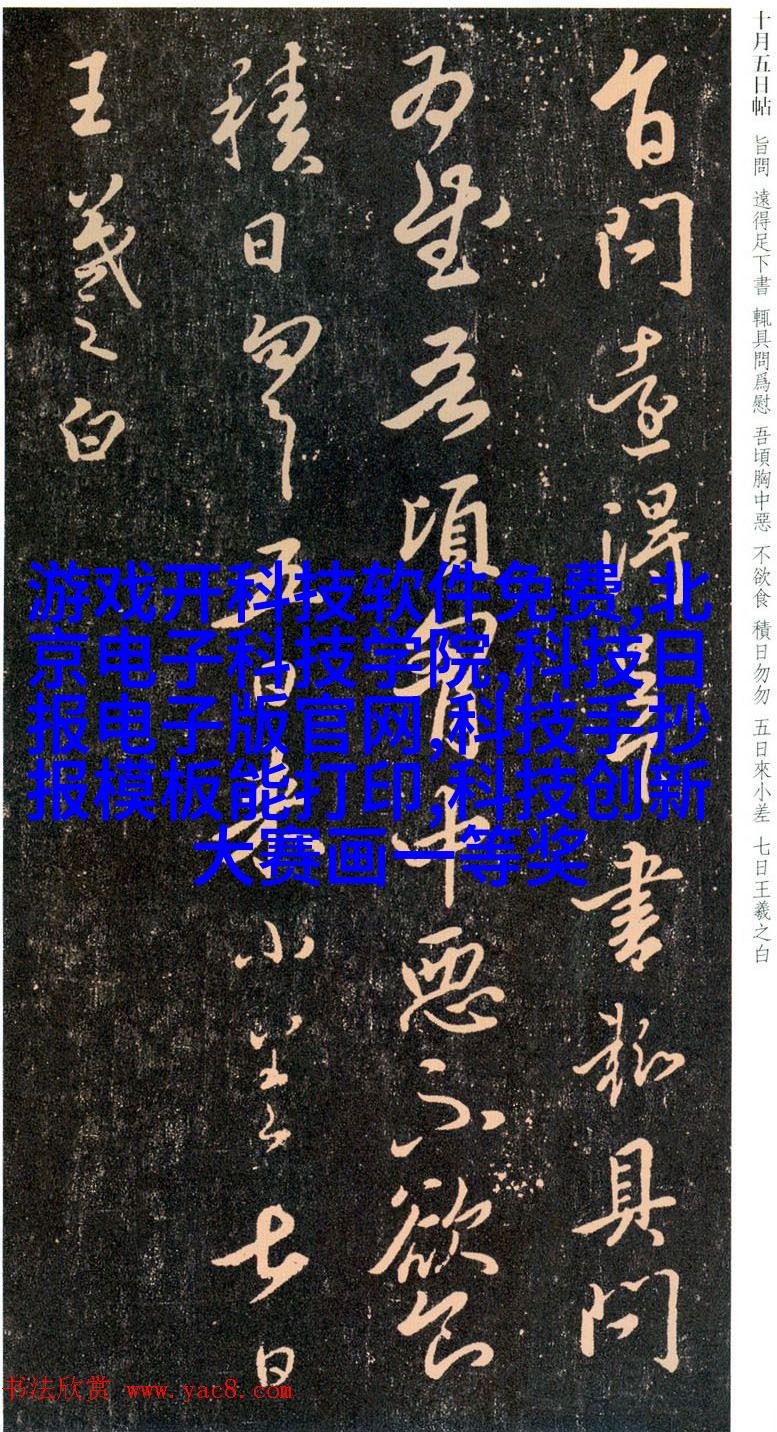 十月五日帖 旨問 遠得足下書 輒具問爲慰 吾頃胸中惡 不欲食 積日勿勿 五日來小差 七日王羲之白
旨問遠得足下書輒具問
為慰吾頃胷中惡不欲食
積日勿勿五日來小差七日
王羲之白
游戏开科技软件免费,北
京电子科技学院,科技日
报电子版官网,科技手抄
报模板能打印,科技创新
大赛画一等奖
书法欣赏 www.yac8.com